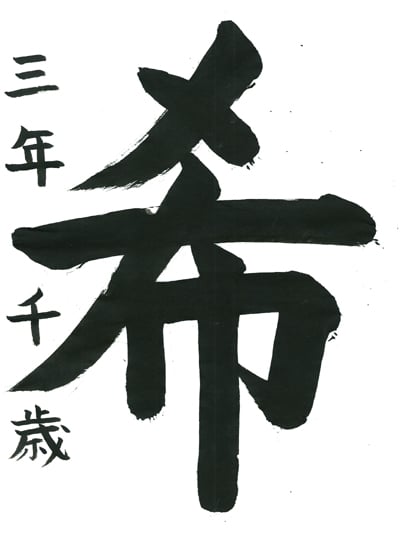 希
三年 千歳